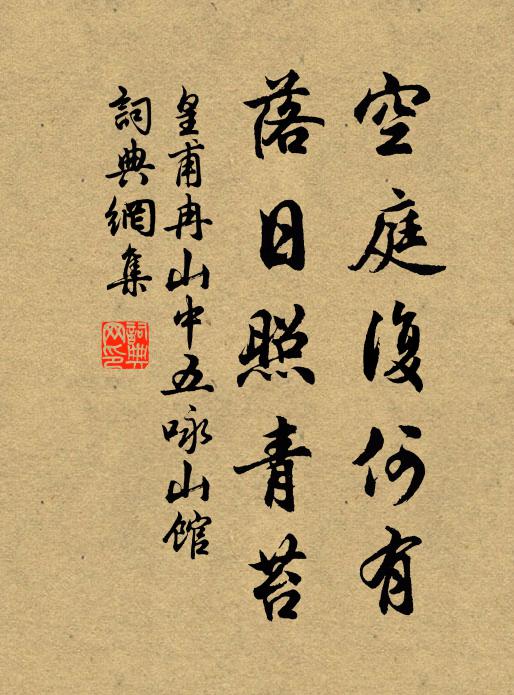 空庭復何有
落日照青苔
皇甫冉山中五咏山館
詞典網集
詞典网印